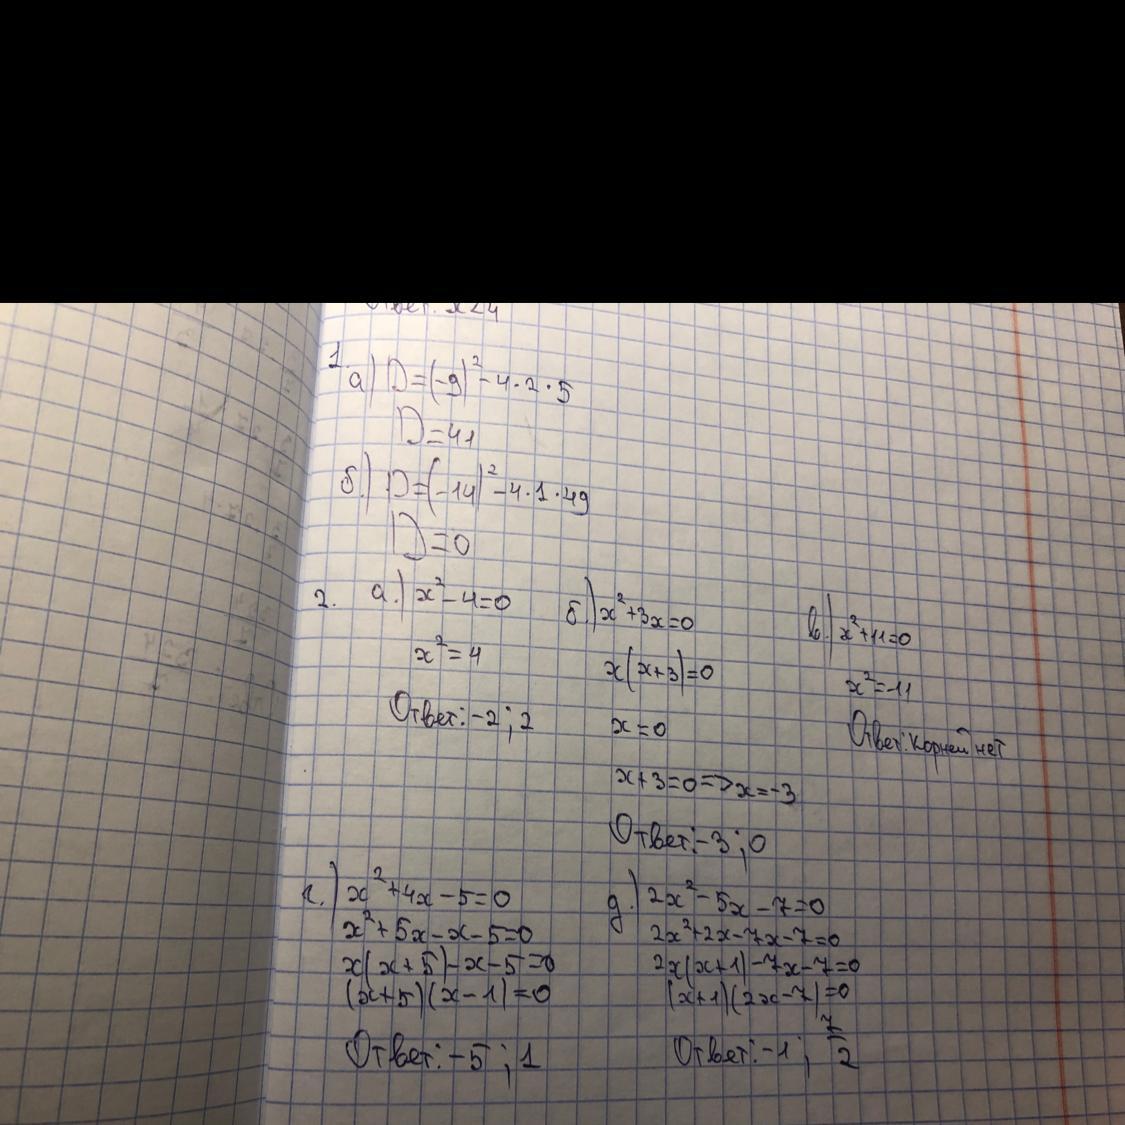 Ответ: x<4
1.
а) D=(-9)²-4·2·5
D=41
б.) D=(-14)²-4·1·49
D=0
2. а.) x²-4=0
x²=4
Ответ: -2; 2
б.) x²+3x=0
x(x+3)=0
x=0
x+3=0=>x=-3
Ответ: -3; 0
в.) x²+11=0
x²=-11
Ответ: корней нет
г.) x²+4x-5=0
x²+5x-x-5=0
x(x+5)-x-5=0
(x+5)(x-1)=0
Ответ: -5; 1
д.) 2x²-5x-7=0
2x²+2x-7x-7=0
2x(x+1)-7x-7=0
(x+1)(2x-7)=0
Ответ: -1; 7/2